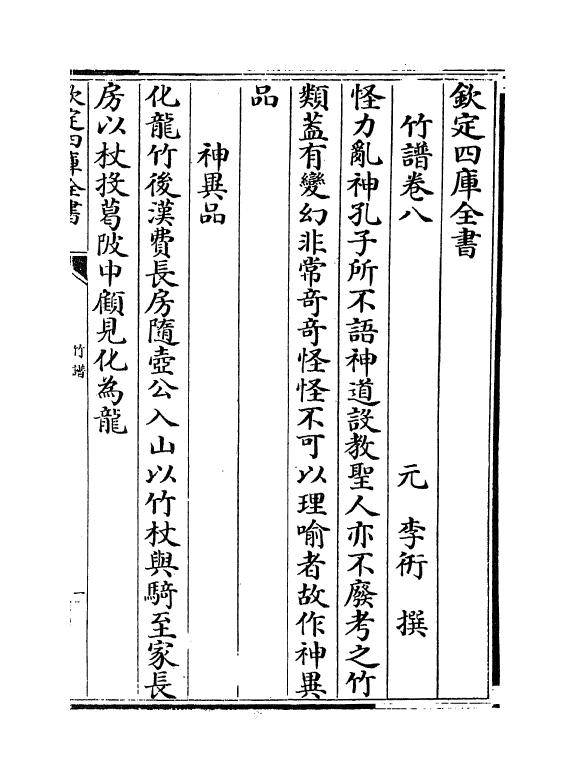 欽定四庫全書
竹譜卷八
元 李衎 撰
怪力亂神孔子所不語神道設教聖人亦不廢考之竹
類葢有變幻非常奇奇怪怪不可以理喻者故作神異
品
神異品
化龍竹後漢費長房隨壺公入山以竹杖與騎至家長
房以杖投葛陂中顧見化為龍
欽定四庫全書
竹譜
一